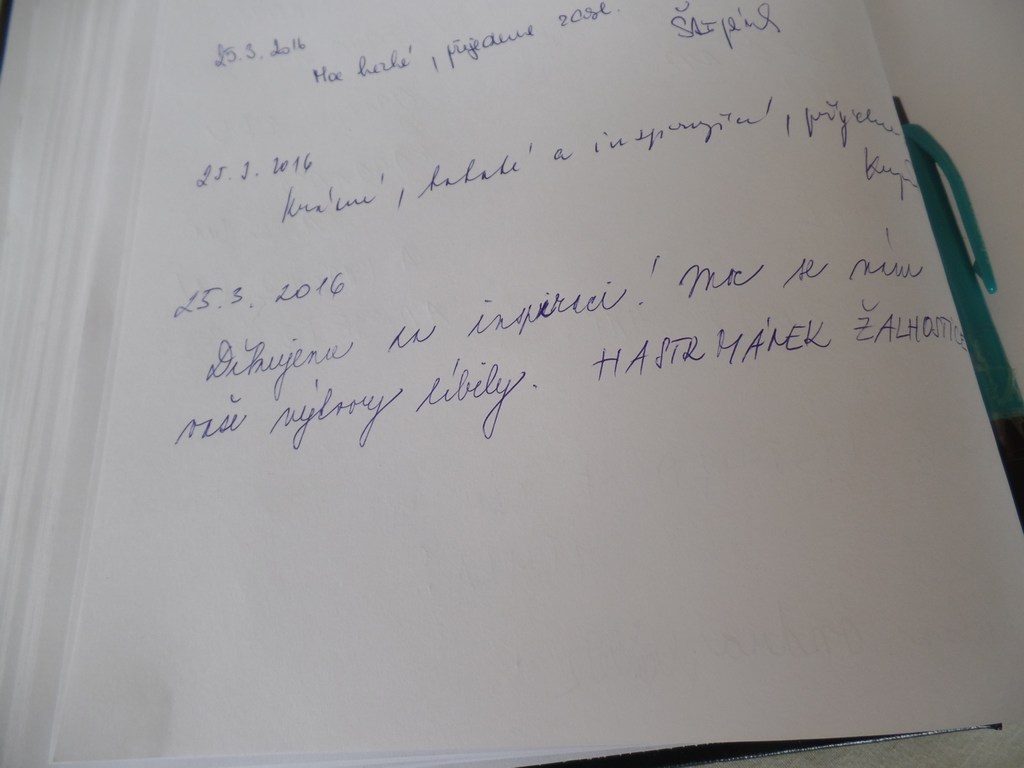 25.3.2016
Moc hezké, přijedeme zase.
25.3.2016
Krásné, bohaté a inspirující,
25.3. 2016
Děkujeme za inspiraci! Moc se nám
vaše výtvory líbily. HASTRMÁNEK ŽALHOSTICE